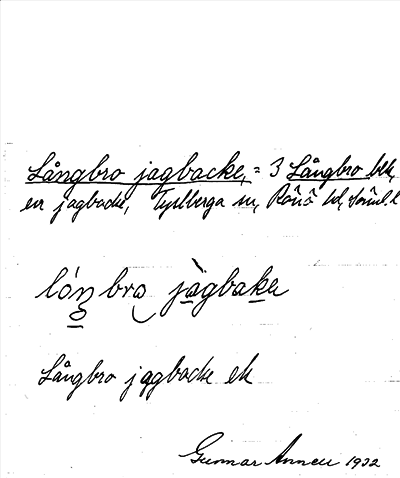 Långbro jagbacke, = 3 Långbro bk,
en jagbacke, Tystberga sn, Rönö hd, Söml. l
lóŋ bro jàgbake
Långbro jagbacke ek
Gunnar Annell 1932